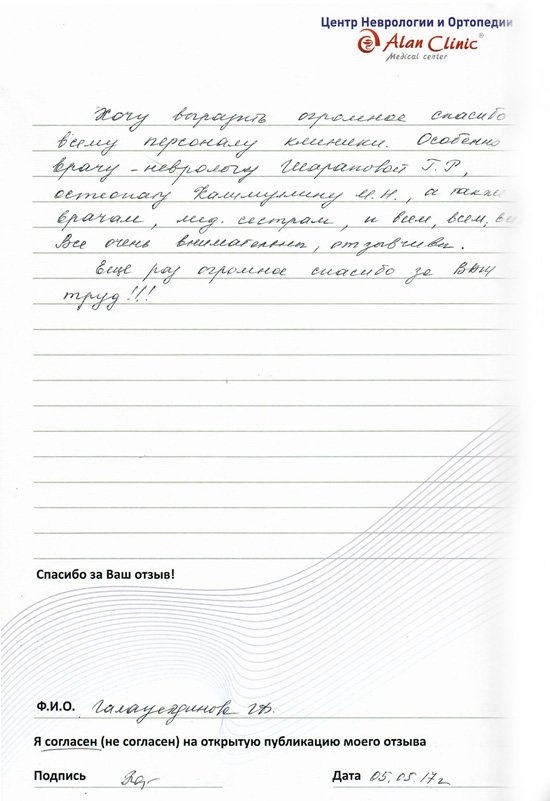 Центр Неврологии и Ортопедии
Alan Clinic®
Medical center
Хочу выразить огромное спасибо
всему персоналу клиники. Особенно
врачу-неврологу Шараповой Г.Р,
остеопату Калимуллину М.Н., а также
врачам, мед. сестрам, и всем, всем, вс
Все очень внимательны, отзывчивы.
Ещё раз огромное спасибо за Ваш
труд!!!
Спасибо за Ваш отзыв!
Ф.И.О.
Я согласен (не согласен) на открытую публикацию моего отзыва
Подпись
Дата 05.05.17г